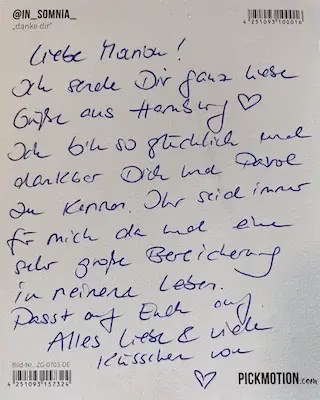 @IN_SOMNIA_
„danke dir"
4251093100016
Liebe Marion!
Ich sende Dir ganz liebe
Grüße aus Hamburg ♡
Ich bin so glücklich und
dankbar Dich und Pavol
zu kennen. Ihr seid immer
für mich da und eine
sehr große Bereicherung
in meinem Leben.
Passt auf Euch auf.
Alles Liebe & viele
Küsschen von
♡
Bild-Nr.: ZG-0705 DE
4251093157324
PICKMOTION.com